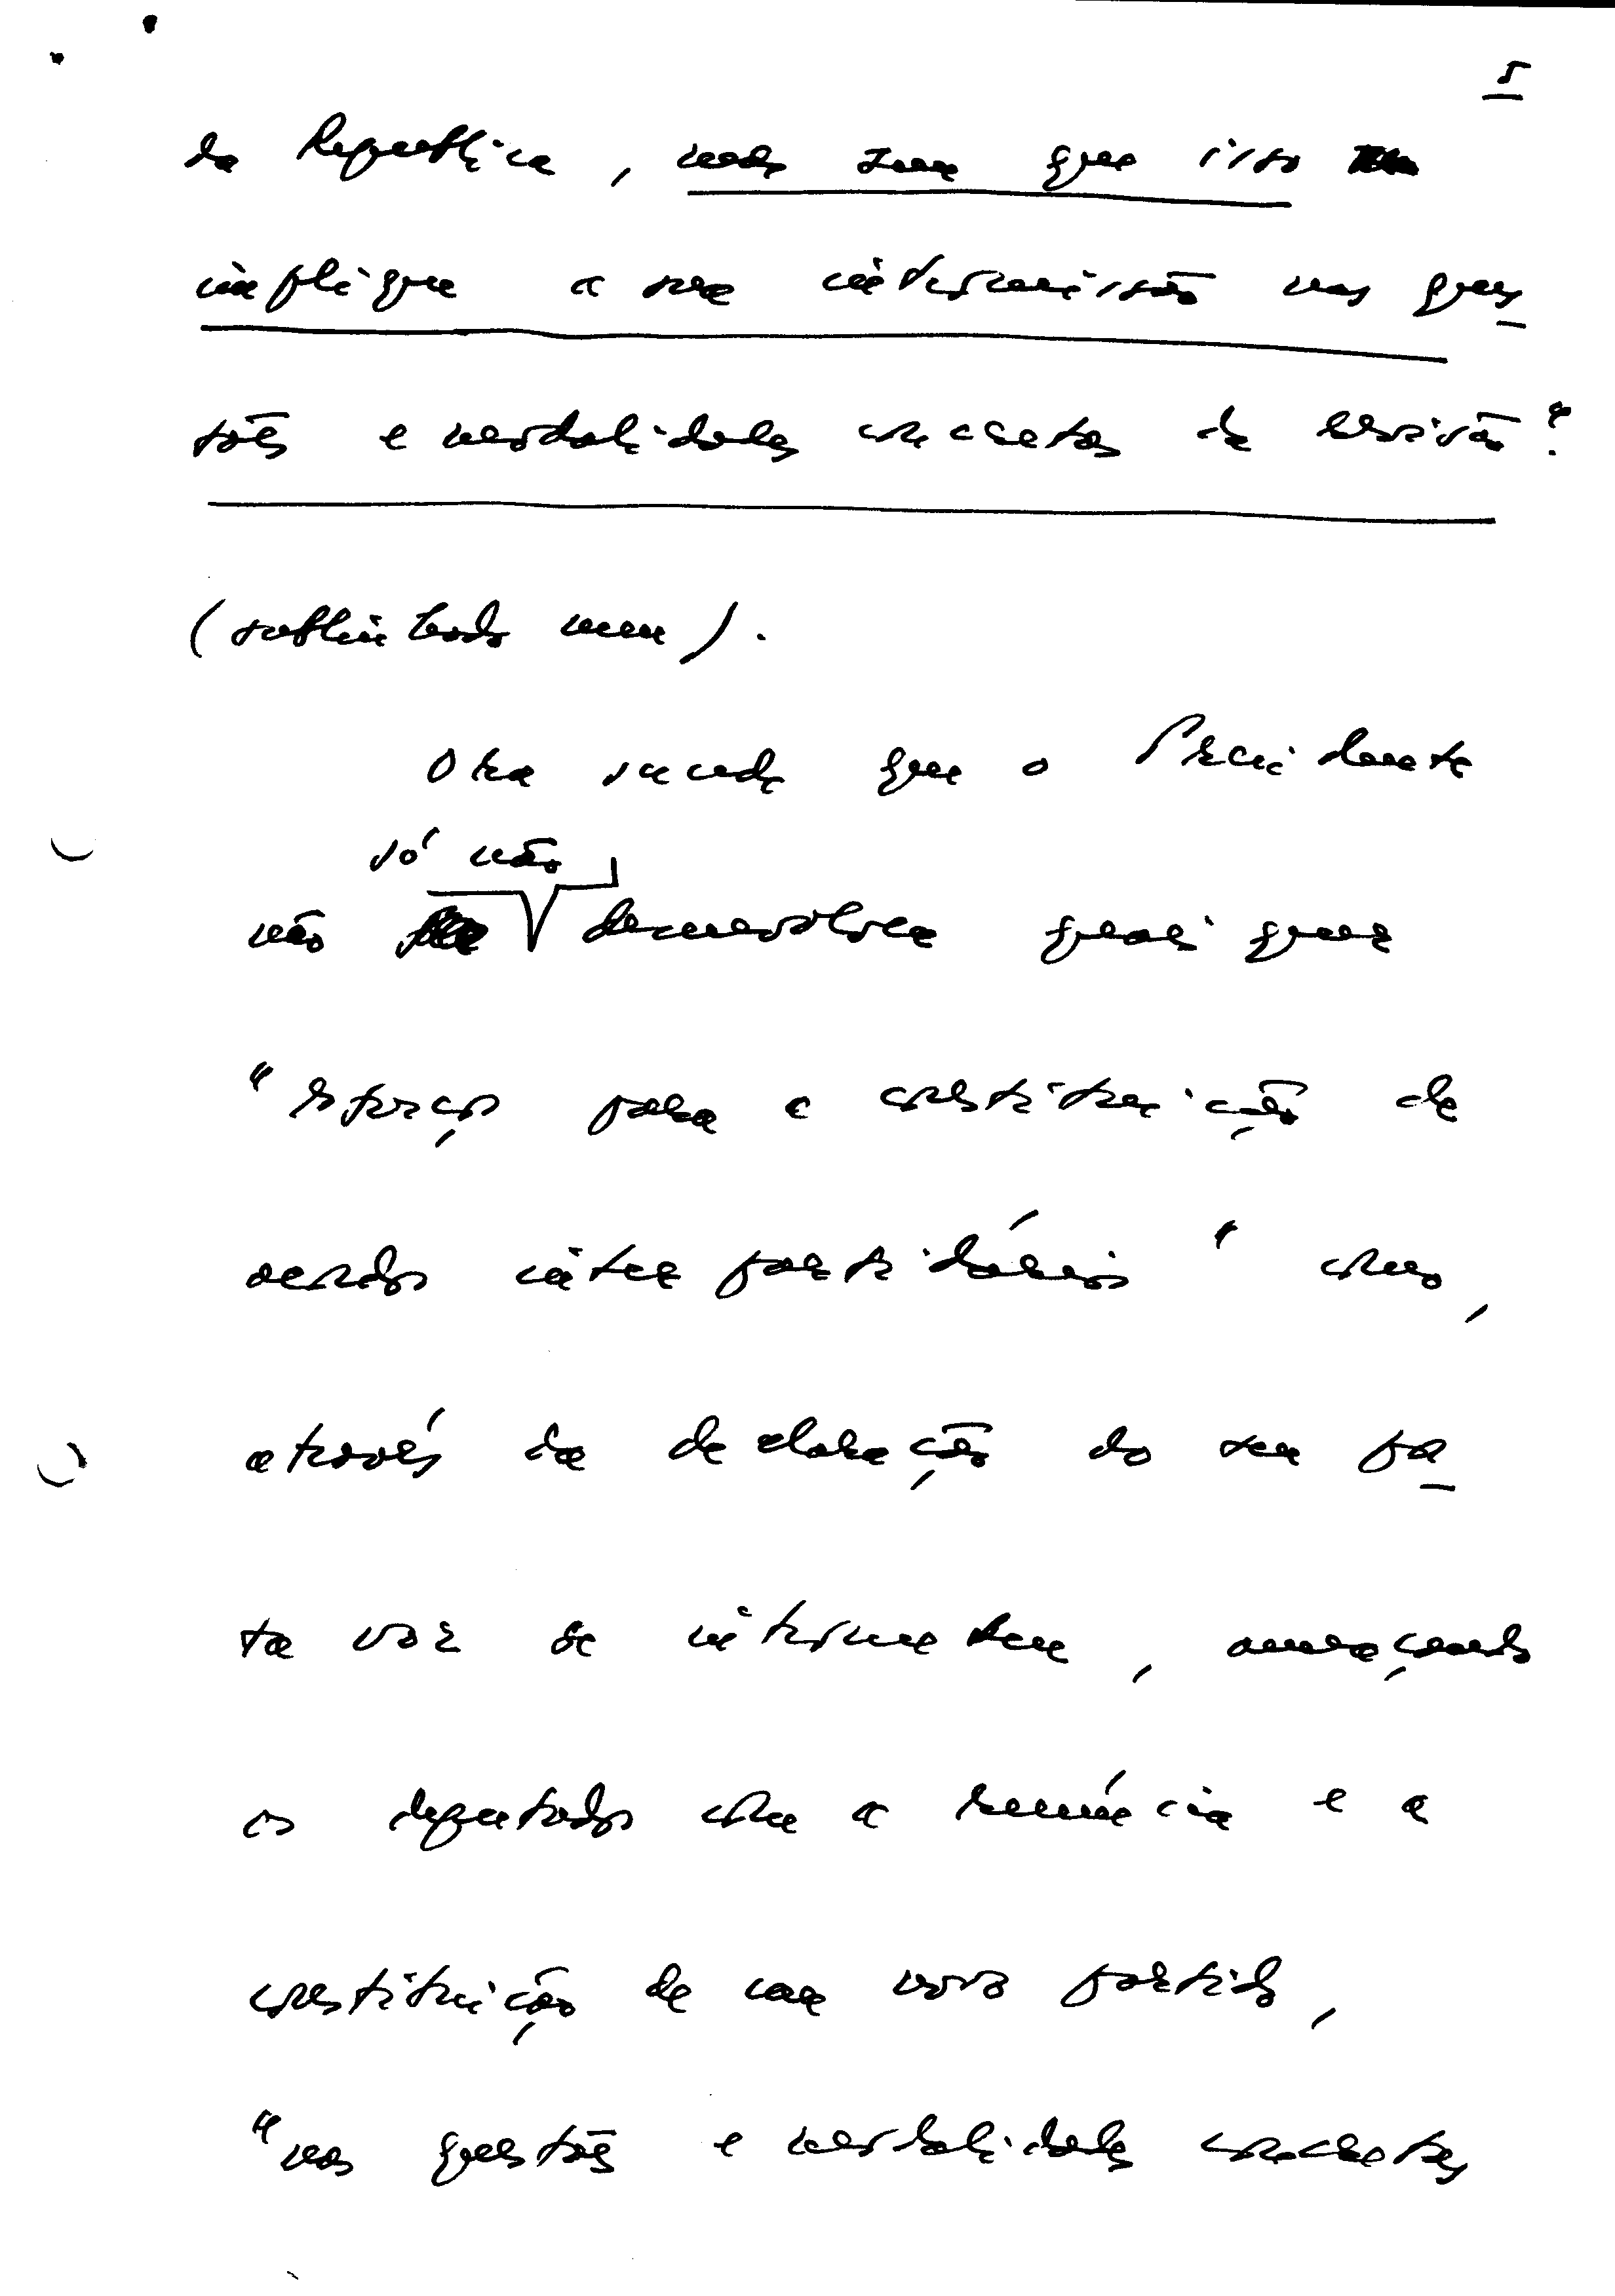 5
da República, sem que isso
implique a sua intromissão nas ques
tões e modalidades concretas da revisão".
(sublinhado meu).
Ora sucede que o Presidente
só não
não desenvolveu qualquer
"esforço para a constituição de
acordo interpartidário" como,
através da declaração do seu po
ta voz se intrometeu, ameaçando
os deputados com a renúncia e a
constituição de um novo partido,
"nas questões e modalidades concretas